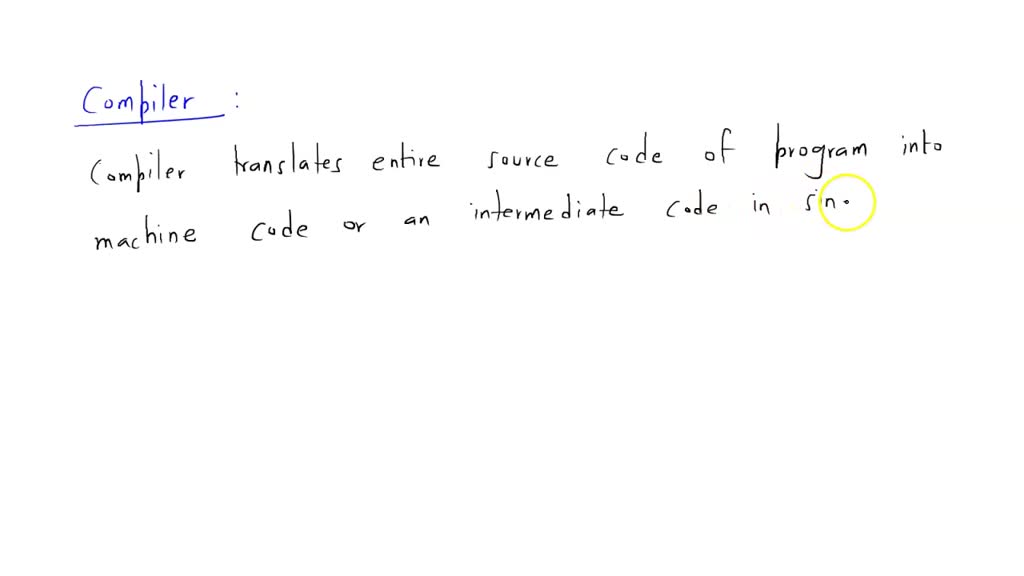 Compiler :
Compiler translates entire source code of program into
machine code or an intermediate code in sin